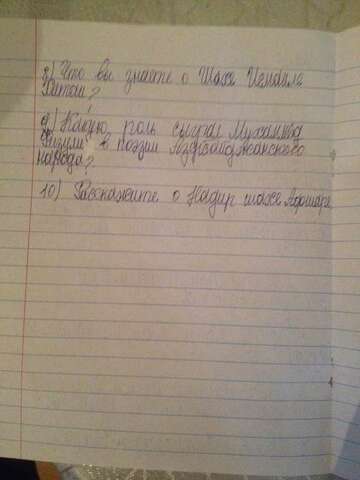 8) Что вы знаете о Шахе Исмаиле
Хатаи?
9) Какую роль сыграл Мухаммед
Физули в поэзии Азербайджанского
народа?
10) Расскажите о Надир шахе Афшаре